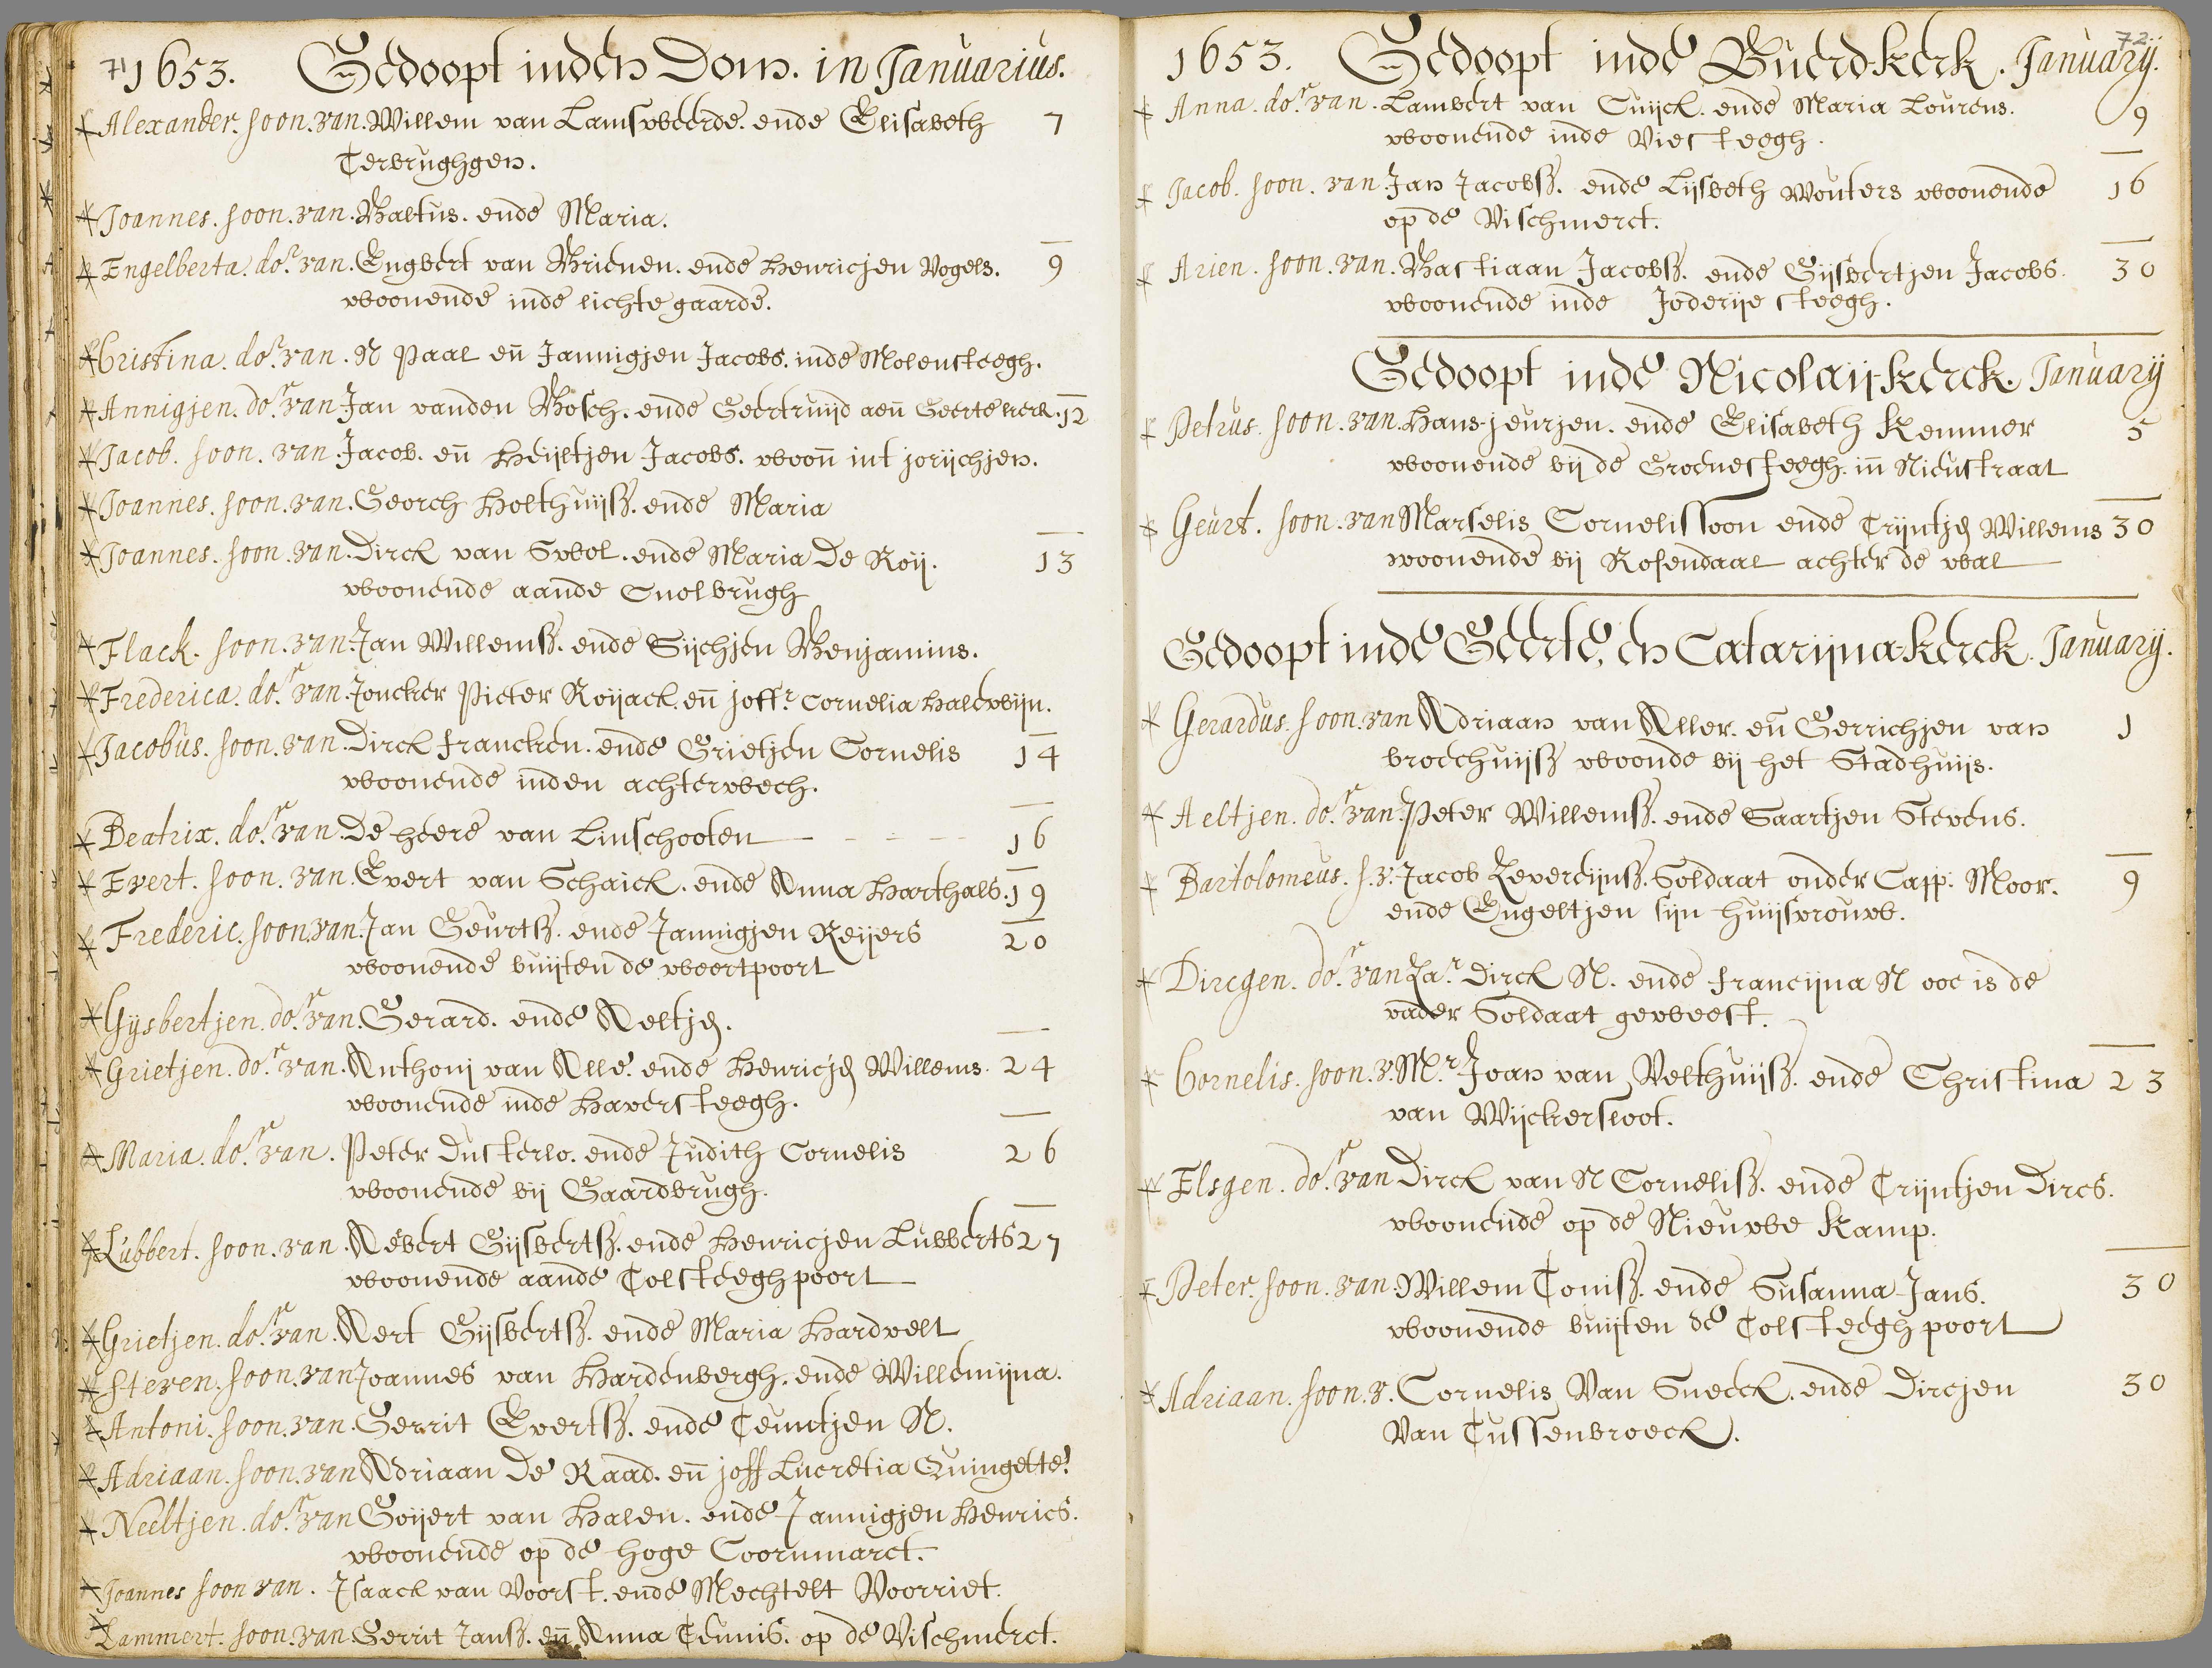 71
1653. Gedoopt inden Dom. in Januarius.
Alexander. soon. van. Willem van Lamsweerde. ende Elisabeth 7
Terbrughgen.
Joannes. soon. van. Baltus. ende Maria.
Engelberta. do.r van. Engbert van Brienen. ende Henricjen Vogels. 9
woonende inde lichte gaarde.
Cristina. do.r van. N Paal en̄ Jannigjen Jacobs. inde Molensteegh.
Annigjen. do.r van Jan vanden Bosch. ende Geertruijd aen̄ Geertekerck. 12
Jacob. soon. van. Jacob. en̄ Heijltjen Jacobs. woon̄ int jorijchjen.
Joannes. soon. van. Georch Holthuijsz. ende Maria
Joannes. soon. van. Dirck van Swol. ende Maria De Roij. 13
woonende aande Smolbrugh
Flack. soon. van. Jan Willemsz. ende Sijchjen Benjamins.
Frederica. do.r van. Joncker Pieter Roijack. en̄ joff.r Cornelia Halewijn.
Jacobus. soon. van. Dirck francken. ende Grietjen Cornelis 14
woonende inden achterwech.
Beatrix. do.r van. De heere van Linschooten 16
Evert. soon. van. Evert van Schaick. ende Anna Harthals. 19
Frederic. soon. van. Jan Geurtsz. ende Jannigjen Reijers 20
woonende buijten de weertpoort
Gijsbertjen. do.r van. Gerard. ende Aeltjen.
Grietjen. do.r van. Anthonij van Alle. ende Henricjen Willems. 24
woonende inde Haversteegh.
Maria. do.r van. Peter Dusterlo. ende Judith Cornelis 26
woonende bij Gaardbrugh.
Lubbert. soon. van. Aebert Gijsbertsz. ende Henricjen Lubberts 27
woonende aande Tolsteeghpoort
Grietjen. do.r van. Aert Gijsbertsz. ende Maria Hardvelt
Steven. soon. van Joannes van Hardenbergh. ende Willemijna.
Antoni. soon. van. Gerrit Evertsz. ende Teuntjen N.
Adriaan. soon. van Adriaan De Raad. en̄ joff Lucretia Quingette.
Neeltjen. do.r van Goijert van Halen. ende Jannigjen Henrics.
woonende op de hoge Coornmarct.
Joannes soon van. Isaack van Voorst. ende Mechtelt Voorriet.
Lammert. soon. van. Gerrit Jansz. en̄ Anna Teunis. op de Vischmerct.
72
1653. Gedoopt inde Buerdkerk. Januarij.
Anna. do.r van. Lambert van Cuijck. ende Maria Lourens. 9
woonende inde Viesteegh.
Jacob. soon. van Jan Jacobsz. ende Lijsbeth Wouters woonende 16
op de Vischmerct.
Arien. soon. van. Bastiaan Jacobsz. ende Gijsbertjen Jacobs. 30
woonende inde Joderije steegh.
Gedoopt inde Nicolaijkerck. Januarij
Petrus. soon. van. Hans-jeurjen. ende Elisabeth Kemmer 5
woonende bij de Groenesteegh. in̄ Nieustraat
Geurt. soon. van Marselis Cornelissoon ende Trijntjen Willems 30
woonende bij Rosendaal achter de wal
Gedoopt inde Geerte, en Catarijnakerck. Januarij.
Gerardus. soon. van Adriaan van Aller. en̄ Gerrichjen van 1
broechuijsz woonde bij het Stadhuijs.
Aeltjen. do.r van. Peter Willemsz. ende Saartjen Stevens.
Bartolomeus. s. v. Jacob Levereijnsz. Soldaat onder Capp. Moor. 9
ende Engeltjen sijn huijsvrouw.
Dircgen. do.r van Za.r Dirck N. ende francijna N ooc is de
vader Soldaat geweest.
Cornelis. soon. v. M.r Joan van Velthuijsz. ende Christina 23
van Wijckersloot.
Elsgen. do.r van Dirck van N Cornelisz. ende Trijntjen Dircs.
woonende op de Nieuwe Kamp.
Peter. soon. van. Willem Tonisz. ende Susanna Jans. 30
woonende buijten de Tolsteegh poort
Adriaan. soon. v. Cornelis Van Sneeck. ende Dircjen 30
Van Tussenbroeck.